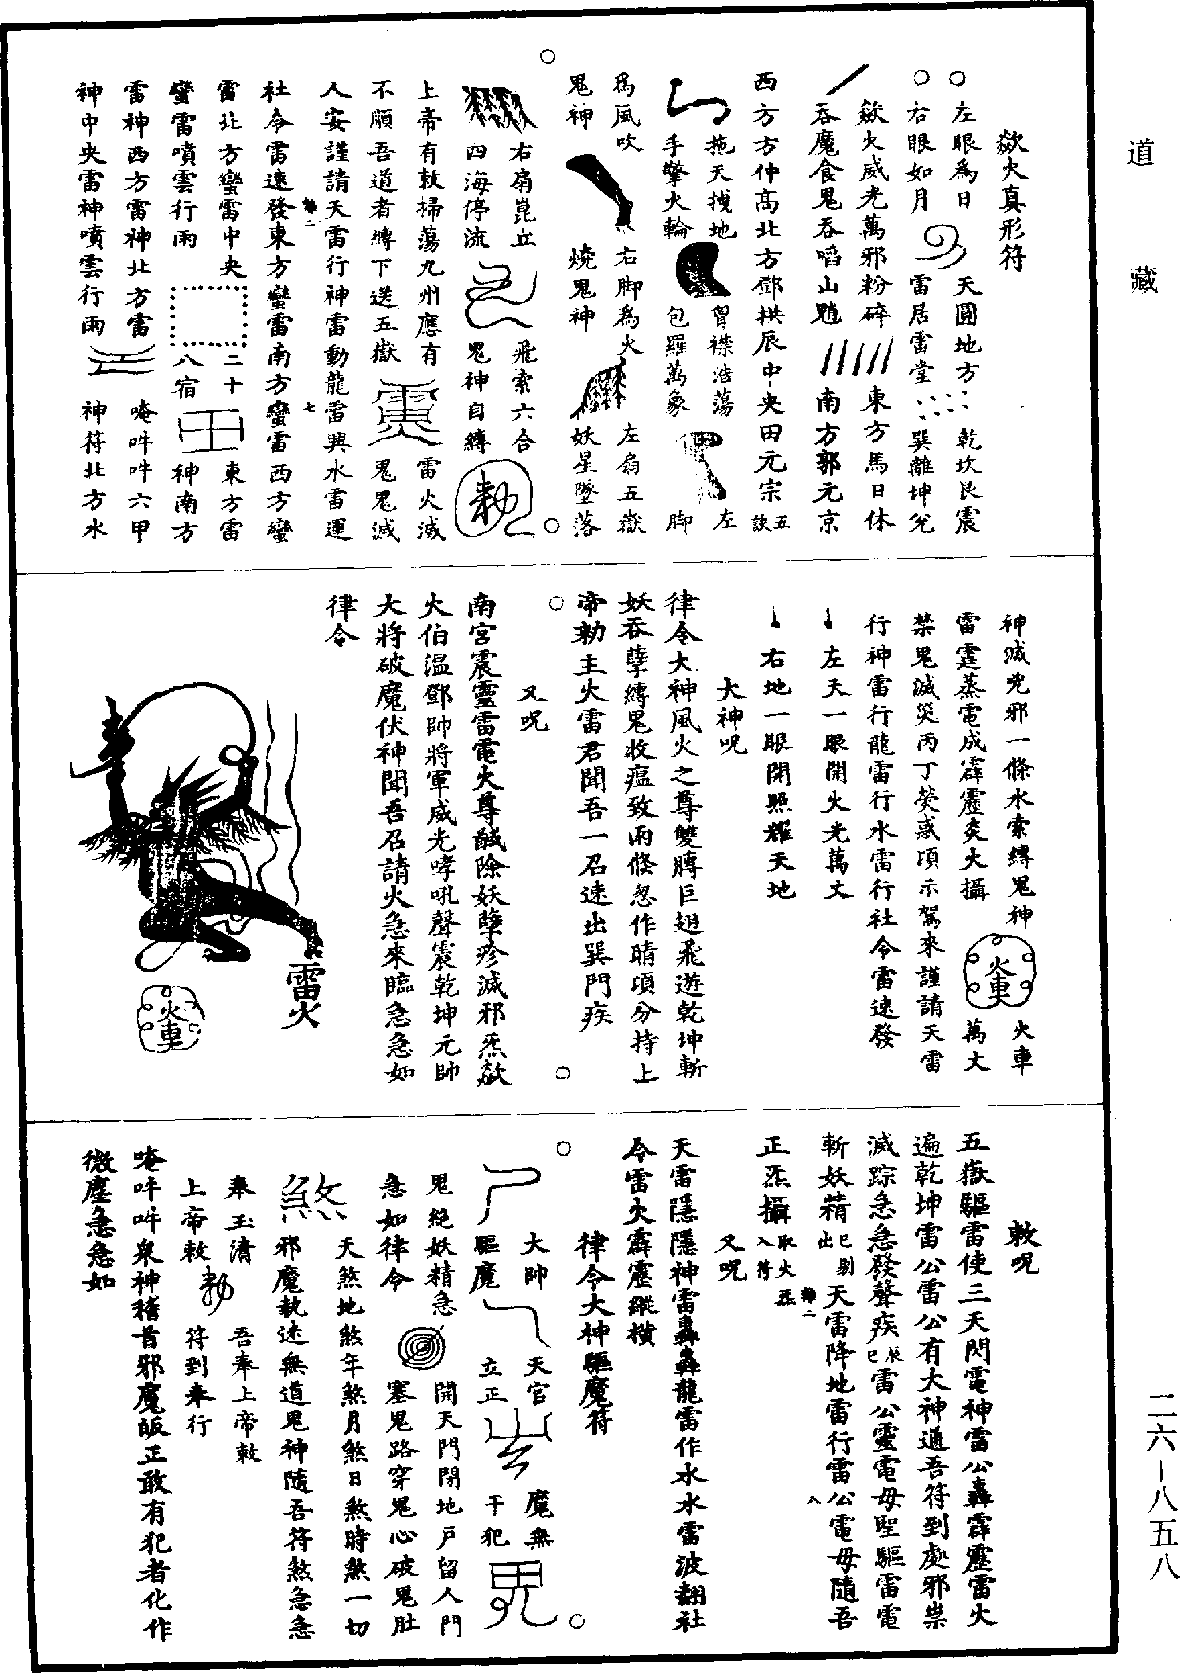 道藏
歘火真形符
○左眼為日　天圓地方　乾坎艮震
○右眼如月　雷居雷堂　巽離坤兌
歘火威光萬邪粉碎　東方馬日休
吞魔食鬼吞啗山魈　南方郭元京
西方方仲高北方鄧拱辰中央田元宗訣五
拖天拽地　胷襟浩蕩　左
手擎火輪　包羅萬象　脚
為風吹　右脚為火　左扇五嶽
鬼神　燒鬼神　妖星墜落
右扇崑丘　飛索六合
四海停流　鬼神自縛　勑
上帝有敕掃蕩九州應有　雷火滅
不順吾道者縛下送五嶽　鬼鬼滅
人安謹請天雷行神雷動龍雷興水雷運
社令雷速發東方蠻雷南方蠻雷西方蠻
雷北方蠻雷中央　二十　東方雷
蠻雷噴雲行雨　八宿　神南方
雷神西方雷神北方雷　唵吽吽六甲
神中央雷神噴雲行雨　神符北方水
神滅兇邪一條水索縛鬼神　火車
雷霆蒸電成霹靂炎火攝　火車　萬丈
禁鬼滅災丙丁熒惑頃示駕來謹請天雷
行神雷行龍雷行水雷行社令雷速發
左天一眼開火光萬丈
右地一眼閉照耀天地
大神呪
律令大神風火之尊雙䏶巨翅飛遊乾坤斬
妖吞孽縛鬼收瘟致雨倏忽作晴頃分持上
帝勑主火雷君聞吾一召速出巽門疾
又呪
南宮震靈雷電火尊馘除妖孽殄滅邪炁歘
火伯溫鄧帥將軍威光哮吼聲震乾坤元帥
大將破魔伏神聞吾召請火急來臨急急如
律令
雷火
火車
敕呪
五嶽驅雷使三天閃電神雷公轟霹靂雷火
遍乾坤雷公雷公有大神通吾符到處邪祟
滅踪急急發聲疾辰巳雷公靈電母聖驅雷電
斬妖精巳剔出　天雷降地雷行雷公電母隨吾
正炁攝取火炁入符
又呪
天雷隱隱神雷轟轟龍雷作水水雷波翻社
令雷火霹靂縱橫
律令大神驅魔符
大帥　天官　魔無
驅魔　立正　干犯
鬼絕妖精急　開天門閉地戶留人門
急如律令　塞鬼路穿鬼心破鬼肚
天煞地煞年煞月煞日煞時煞一切
煞　邪魔執迷無道鬼神隨吾符煞急急
奉玉清　吾奉上帝敕
上帝敕　勑　符到奉行
唵吽吽衆神稽首邪魔皈正敢有犯者化作
微塵急急如
二六—八五八